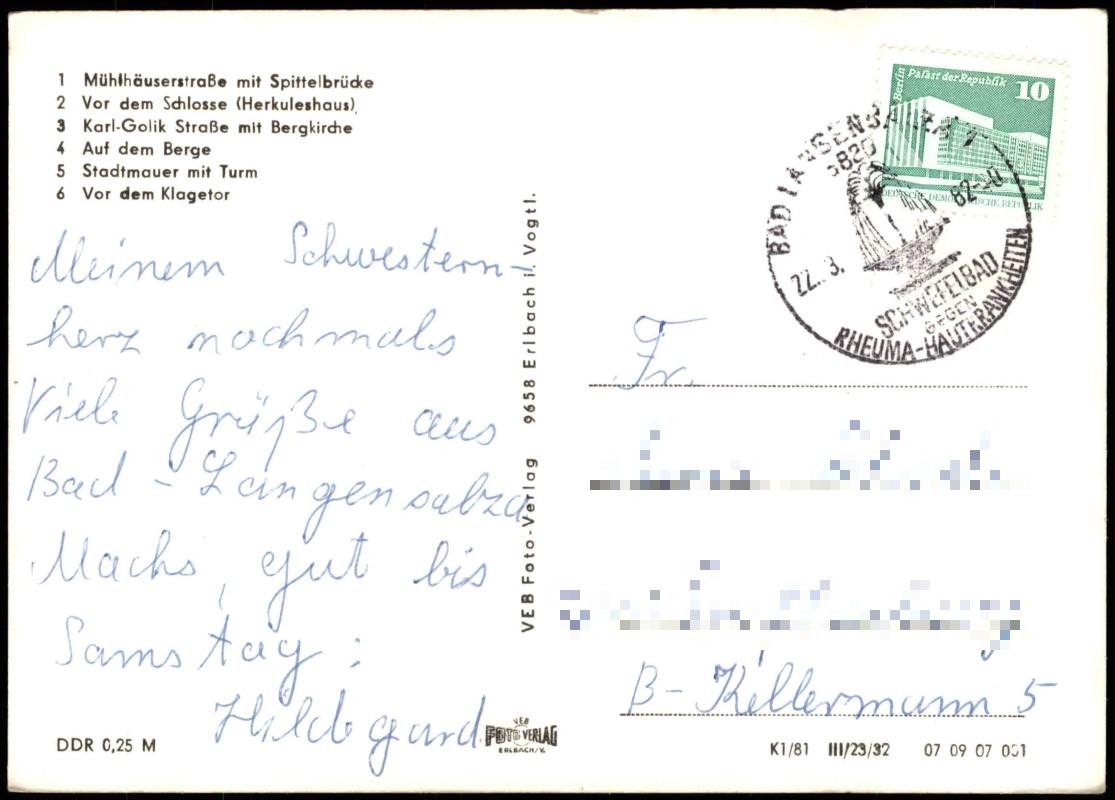 1 Mühlhäuserstraße mit Spittelbrücke
2 Vor dem Schlosse (Herkuleshaus)
3 Karl-Golik Straße mit Bergkirche
4 Auf dem Berge
5 Stadtmauer mit Turm
6 Vor dem Klagetor
Meinem Schwestern-
herz nochmals
Viele Grüße aus
Bad-Langensalza
Machs gut bis
Samstag:
Hildegard
DDR 0,25 M
VEB Foto-Verlag 9658 Erlbach i. Vogtl.
VEB
FOTO VERLAG
ERLBACH/V.
Berlin Palast der Republik 10
DEUTSCHE DEMOKRATISCHE REPUBLIK
BAD LANGENSALZA 1
5820
22.-3. 82
SCHWEFELBAD
GEGEN
RHEUMA-HAUTKRANKHEITEN
Fr.
B-Kellermann 5
K1/81 III/23/32 07 09 07 001